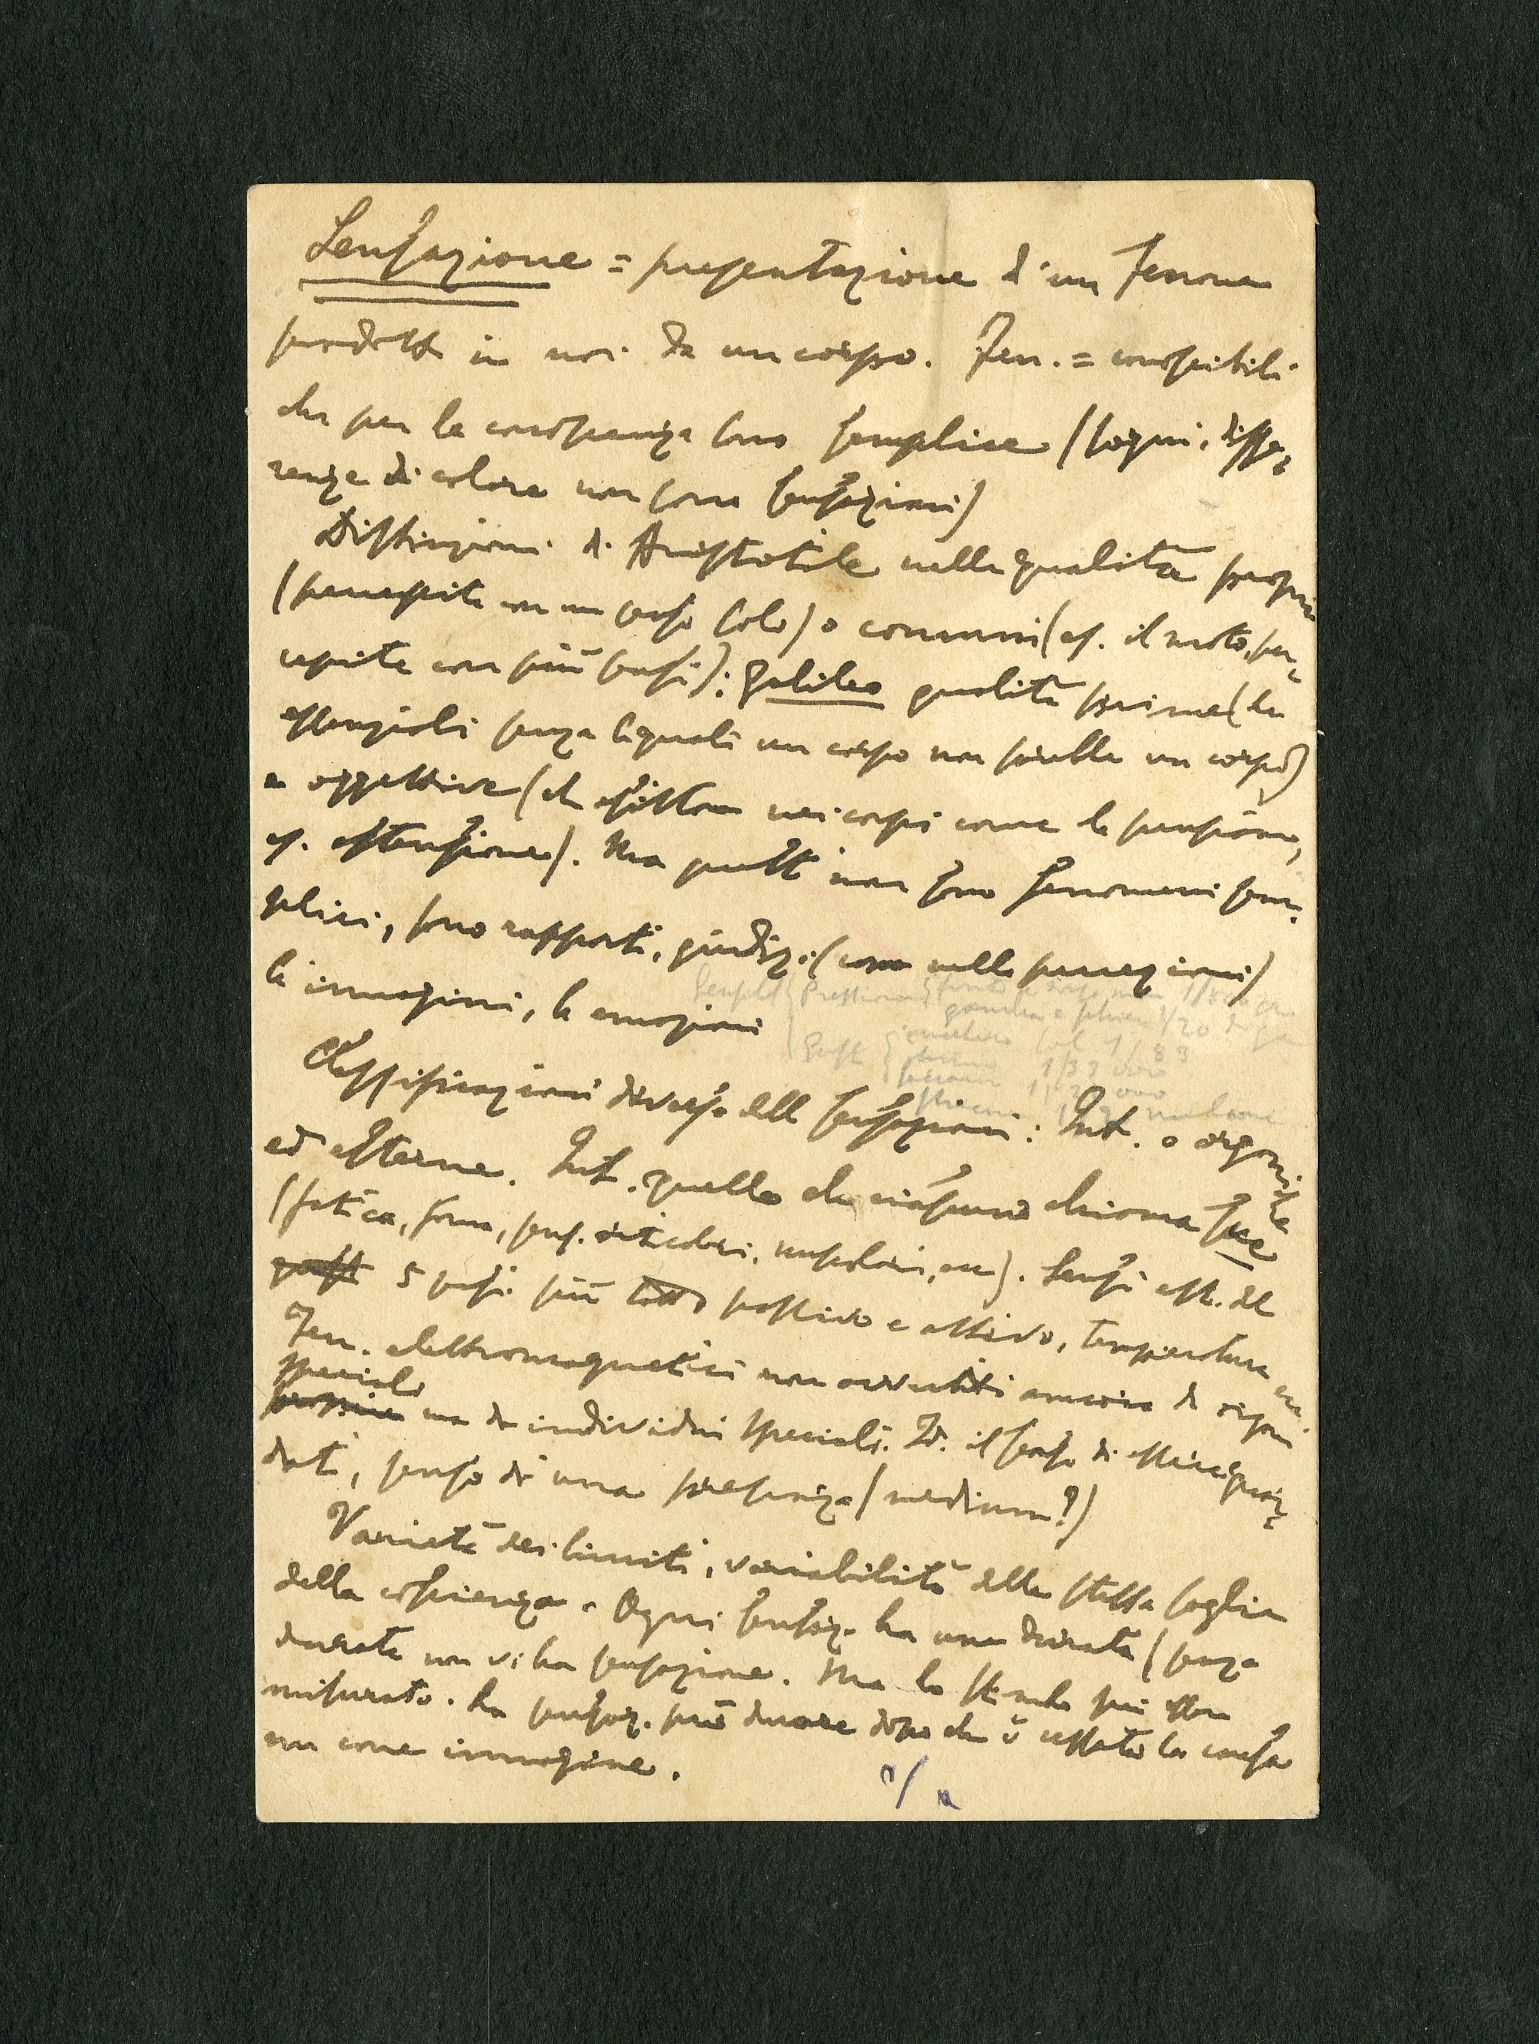 Sensazione = presentazione d'un fenomen
prodotto in noi da un corpo. Fen. = conoscibili
che per la conoscenza sono semplice (sogni, diffe=
renze di colore non sono sensazioni)
Distinzioni di Aristotile nelle qualità proprie
(percepite con un senso solo) o comuni (es. il moto, per=
cepite con più sensi); Galileo qualità prime (le
essenziali senza le quali un corpo non sarebbe un corpo)
e oggettive (che esistono nei corpi come le pensiamo,
es. estensione). Ma questi non sono fenomeni sem=
plici, sono rapporti, giudizi (come nelle percezioni)
le immagini, le emozioni
Pressione
1/20 di
Gusto
Classificazioni diverse delle sensazioni: Int. o organiche
ed esterne. Int. quelle che ciascuno chiama sue
(fatica, fame, sens. articolari, muscolari, ecc). Sensi est. del
5 sensi più tatto passivo e attivo, temperatura ecc.
Fen. elettromagnetici non avvertiti ancora da organi
speciali
ma da individui speciali. Id. il senso di essere guar=
dati, senso di una presenza (medium?)
Varietà dei limiti, variabilità della stessa soglia
della coscienza. Ogni sensaz. ha una durata (senza
durata non vi ha sensazione. Ma lo stimolo può essere
misurato. La sensaz. può durare dopo che è cessata la causa
non come immagine.